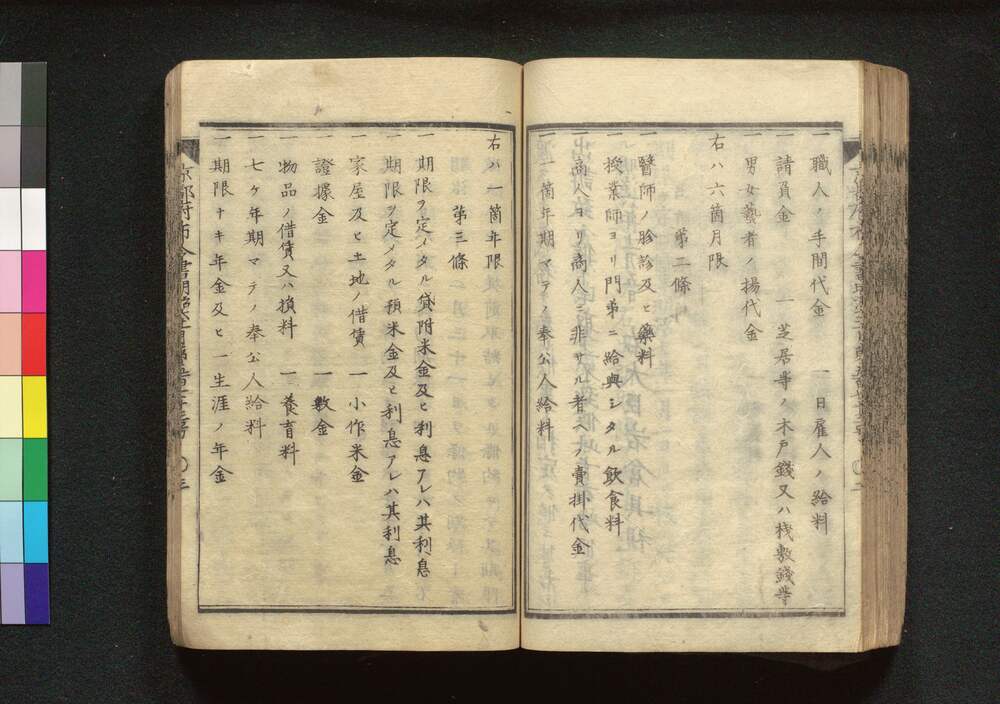 一職人ノ手間代金　一日雇人ノ給料
一請負金　一芝居等ノ木戸錢又ハ棧敷錢等
一男女藝者ノ揚代金
右ハ六箇月限
第二條
一醫師ノ胗診及ヒ藥料
一授業師ヨリ門弟ニ給與シタル飲食料
一商人ヨリ商人ニ非サル者ヘノ賣掛代金
一一箇年期マテノ奉公人給料
右ハ一箇年限
第三條
一期限ヲ定メタル貸附米金及ヒ利息アレハ其利息
一期限ヲ定メタル預米金及ヒ利息アレハ其利息
一家屋及ヒ土地ノ借賃　一小作米金
一證據金　一敷金
一物品ノ借賃又ハ損料　一養育料
一七ケ年期マテノ奉公人給料
一期限ナキ年金及ヒ一生涯ノ年金
京都府布令書明治六年
三